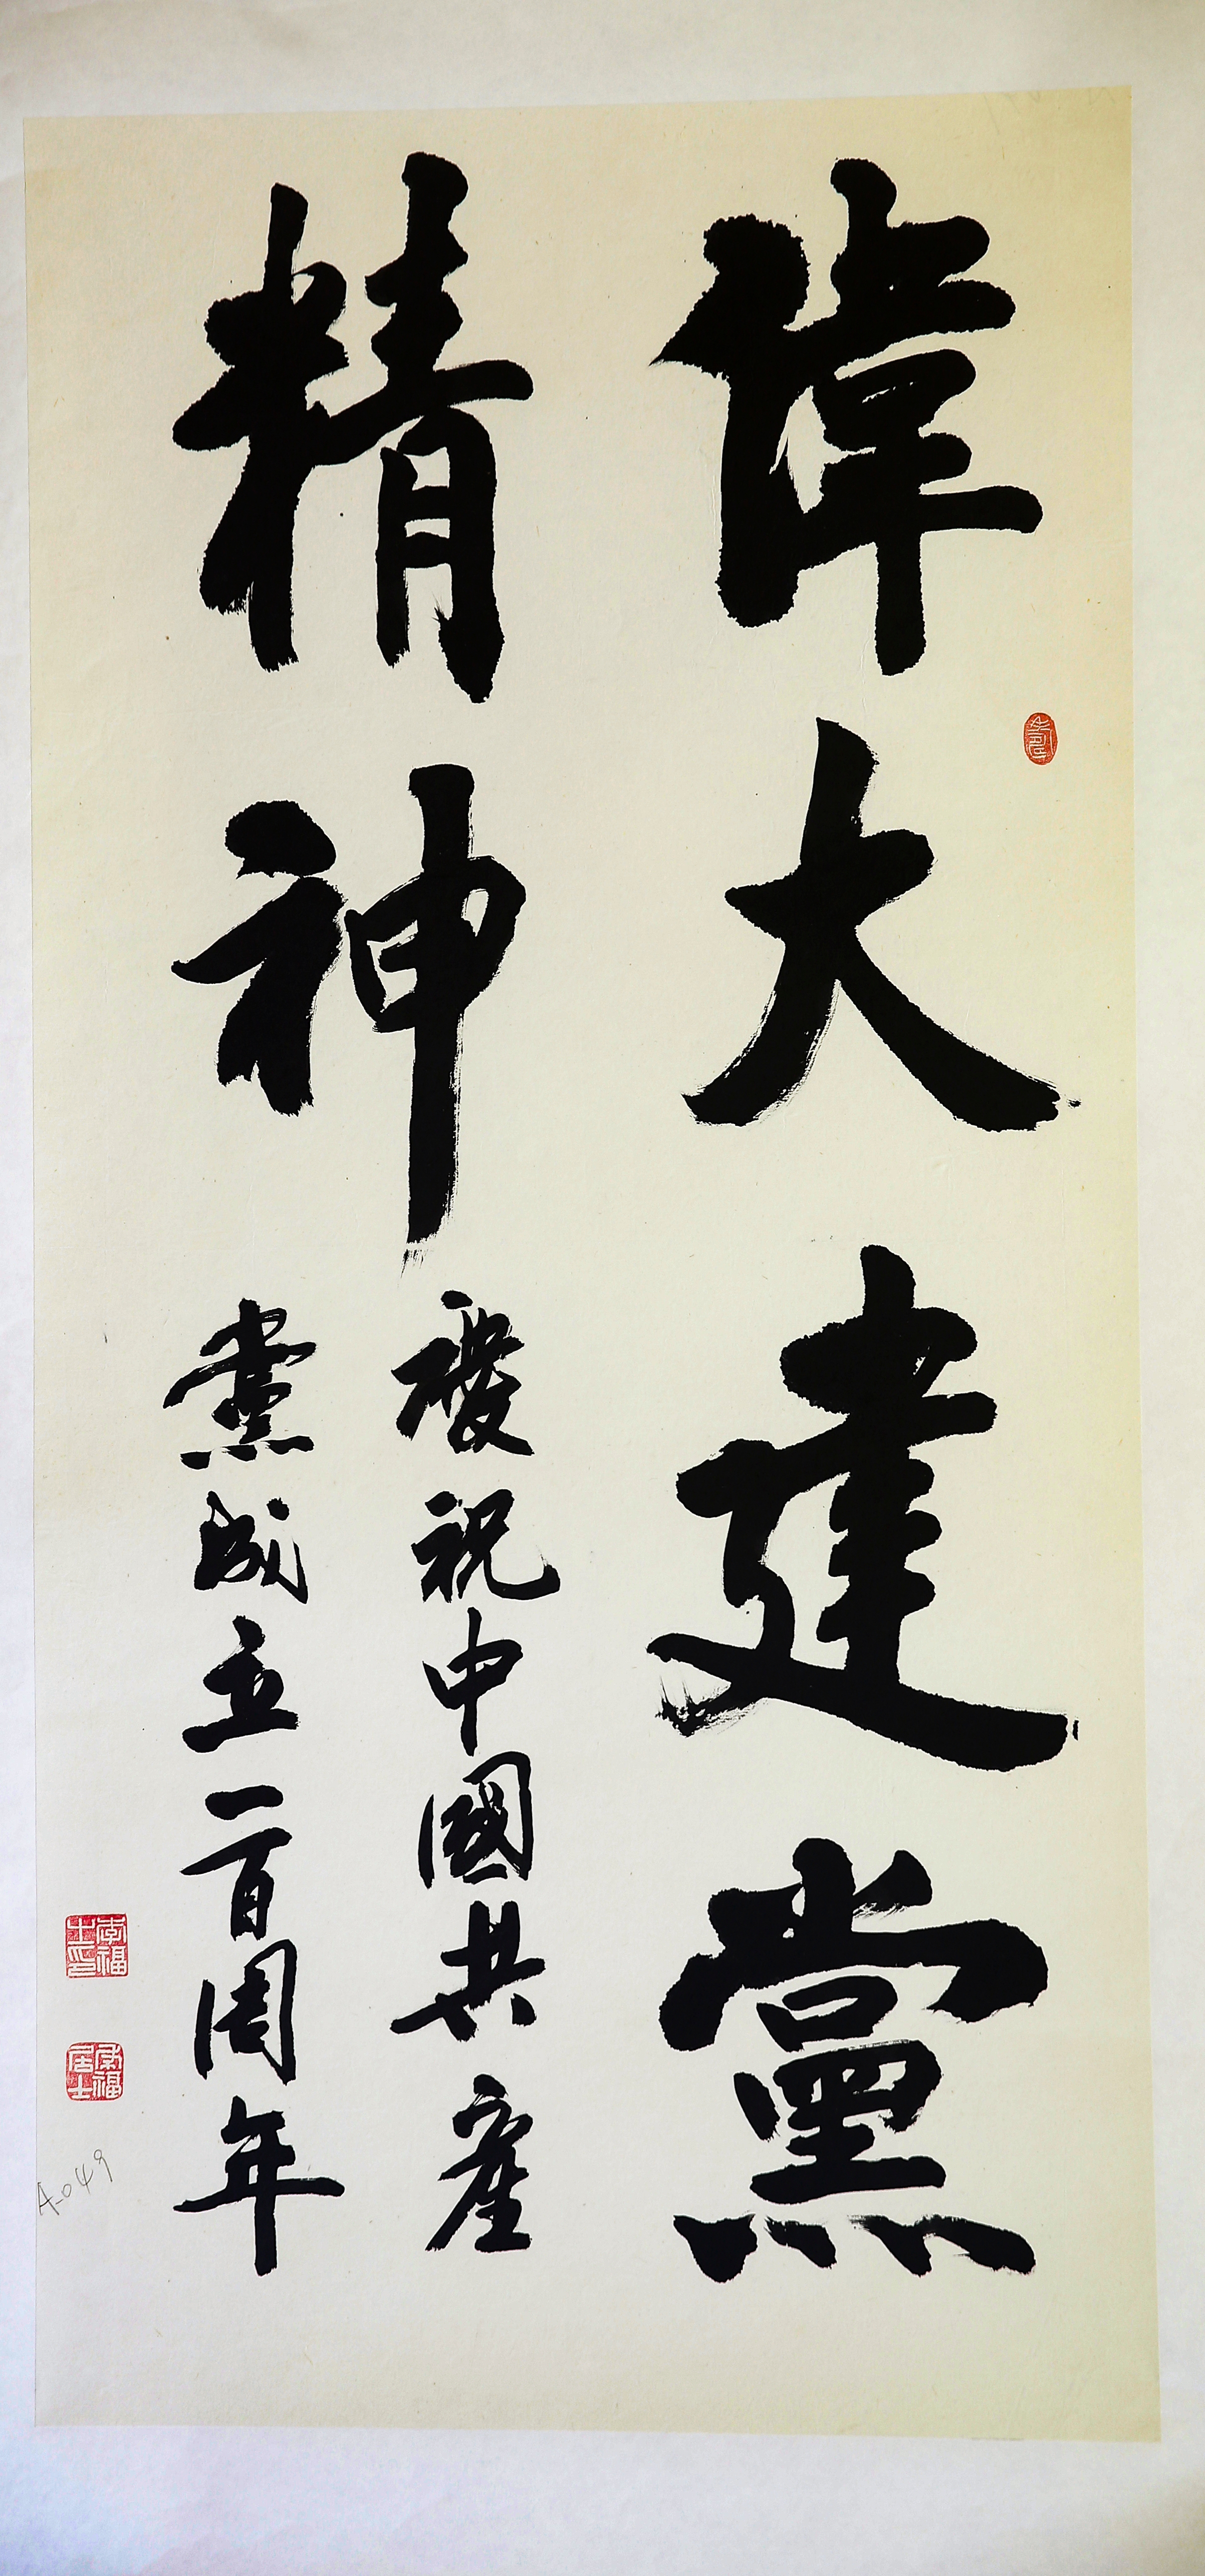 偉大建黨
精神
慶祝中國共產
黨成立一百周年
A-049